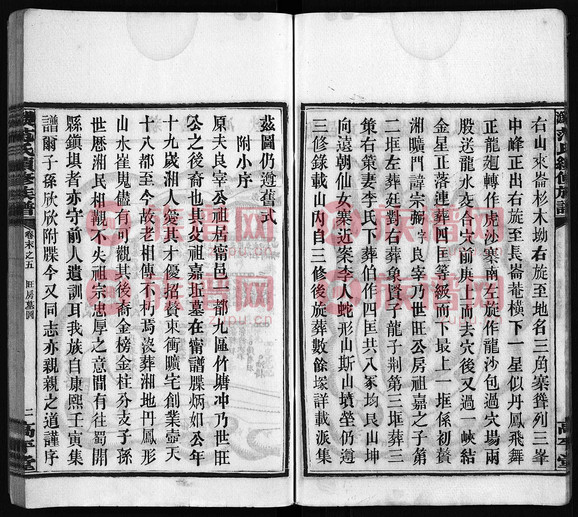 右山來崙杉木坳右旋至地名三角寨聳列三峯
中峰正出右旋至長崙菴橫下一星似丹鳳飛舞
正龍廻轉作虎沙寨南左旋作龍沙包過穴場兩
股送龍水交合穴前庚上而去穴後又過一峽結
金星正落連葬四匡等級而下最上一堆係初贅
湘曠門諱崇獅字良宰乃良公房祖嘉公之子第
二堆左葬廷對右葬象賢子龍子荆第三堆葬三
策右葬妻李氏下葬伯作四匡共八冢均艮山坤
向遠朝仙女寨近案李人蛇形山斯山墳塋仍遵
三修錄載山内自三修後旋葬數餘塚詳載派集
茲圖仍遵舊式
附小序
原夫良宰公祖居甯邑一都九區竹塘冲乃世旺
公之後裔也其父祖嘉近墓在甯譜牒炳如公年
十九歲湘人愛其才優招贅東衝曠宅創業壺天
十八都至今故老相傳不朽焉淡葬湘地丹鳳形
山水崔嵬儘有可觀其後裔金榜金柱分支子孫
世厝湘民相覩不失祖宗忠厚之意間有往蜀開
縣鎮垻者亦守前人遺訓耳我族自康熙壬寅集
譜爾子孫欣欣附牒今又同志亦親親之道謹序
氏續修族譜
卷末之五
旺房墓圖
二
高平堂